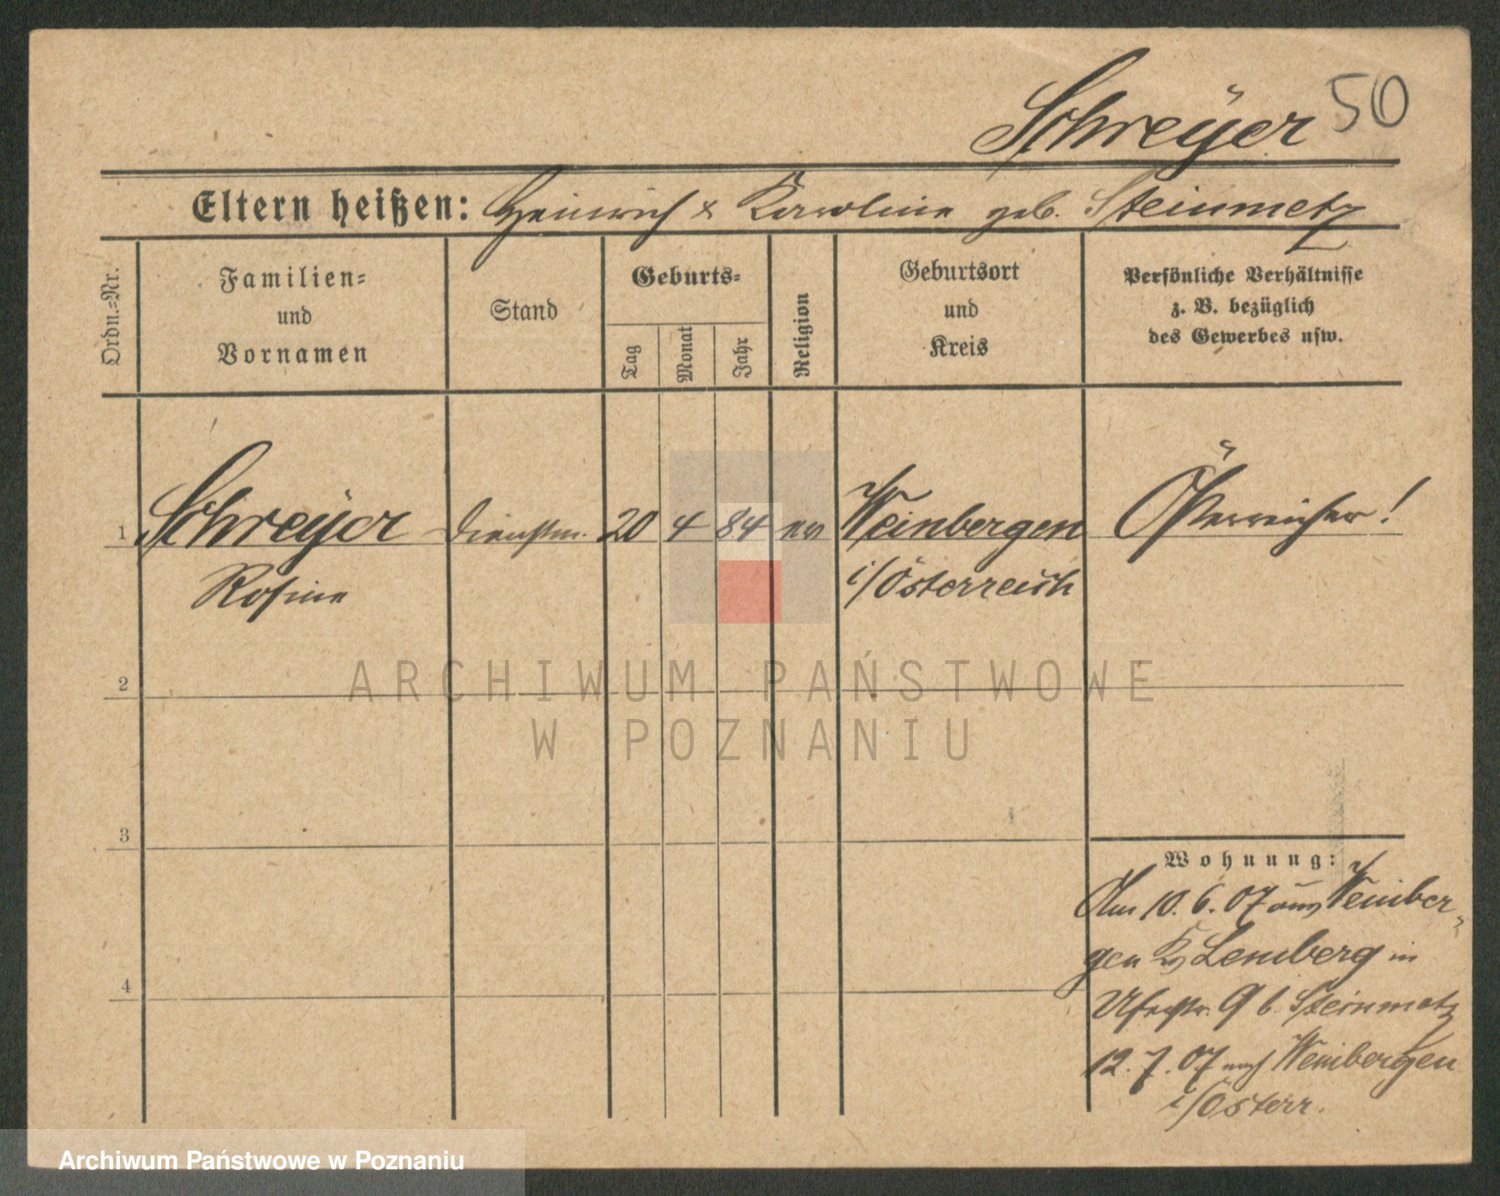 Schreÿer 50
Eltern heißen: Heinrich & Karoline geb. Steinmetz
Ordn.=Nr.
Familien=
und
Vornamen
Stand
Geburts=
Tag
Monat
Jahr
Religion
Geburtsort
und
Kreis
Persönliche Verhältnisse
z. B. bezüglich
des Gewerbes usw.
1 Schreÿer Dienstm. 20 4 84 ev Weinbergen Österreicher!
Rosine i/Österreich
2
3
4
Wohnung:
Am 10. 6. 07 aus Weinber-
gen Kr Lemberg in
Uferstr. 9 b. Steinmetz
12. 7. 07 nach Weinbergen
i/Österr.
ARCHIWUM PAŃSTWOWE
W POZNANIU
Archiwum Państwowe w Poznaniu